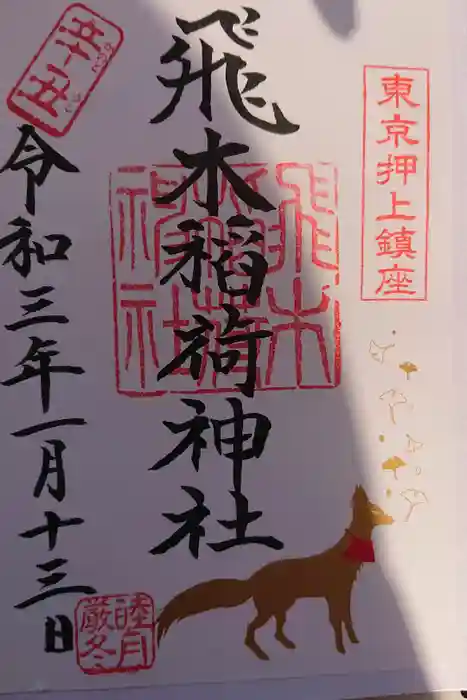 東京押上鎮座
飛木稲荷神社
飛木稲荷神社
五十五
令和三年一月十三日
睦月
厳冬